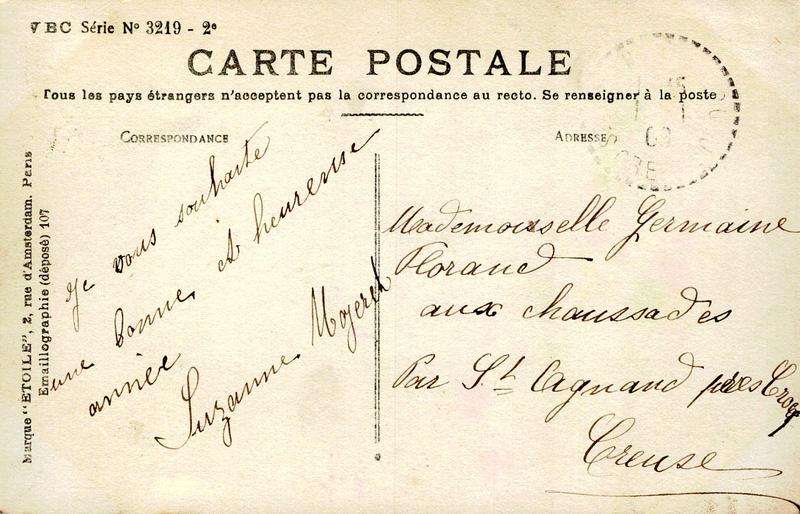 VBC Série No 3219 - 2e
CARTE POSTALE
Tous les pays étrangers n'acceptent pas la correspondance au recto. Se renseigner à la poste
CORRESPONDANCE
ADRESSE
Marque "ETOILE", 2, rue d'Amsterdam. Paris
Emaillographie (déposé) 107
Je vous souhaite
une bonne et heureuse
année
Suzanne
Mademoiselle Germaine
Floraud
aux chaussades
Par St Agnand près Crocq
Creuse